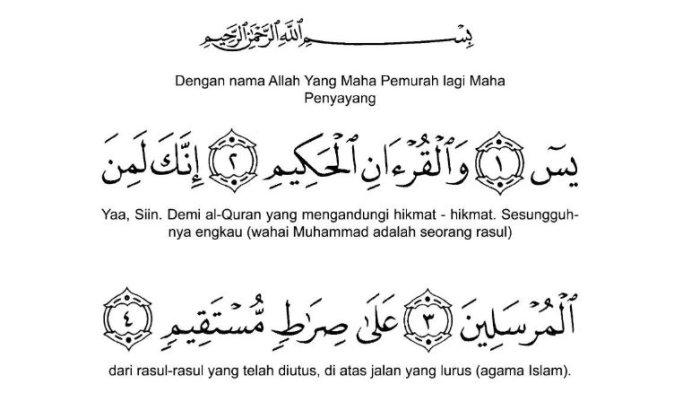 بِسْمِ اللَّهِ الرَّحْمَٰنِ الرَّحِيمِ
Dengan nama Allah Yang Maha Pemurah lagi Maha
Penyayang
يسٓ ١ وَالْقُرْءَانِ الْحَكِيمِ ٢ إِنَّكَ لَمِنَ
Yaa, Siin. Demi al-Quran yang mengandungi hikmat - hikmat. Sesungguh-
nya engkau (wahai Muhammad adalah seorang rasul)
الْمُرْسَلِينَ ٣ عَلَىٰ صِرَٰطٍ مُّسْتَقِيمٍ ٤
dari rasul-rasul yang telah diutus, di atas jalan yang lurus (agama Islam).